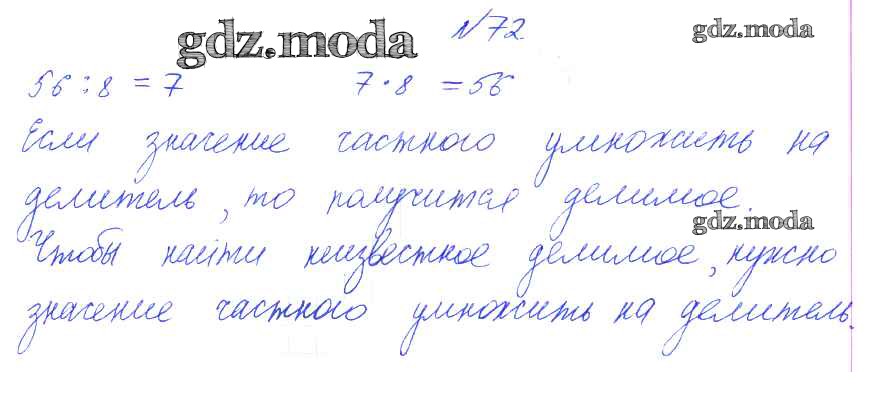 gdz.moda №72. gdz.moda
56 : 8 = 7 7 · 8 = 56
Если значение частного умножить на
делитель, то получится делимое.
gdz.moda
Чтобы найти неизвестное делимое, нужно
значение частного умножить на делитель.